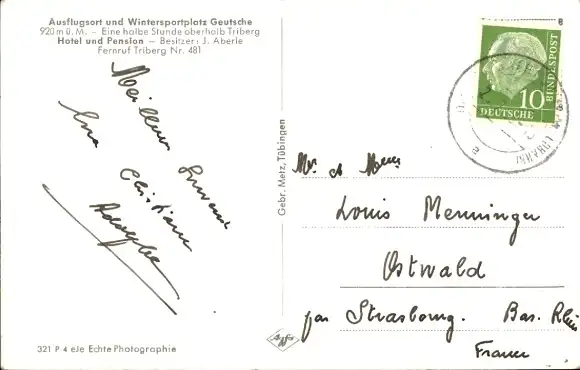 Ausflugsort und Wintersportplatz Geutsche
920 m ü. M. – Eine halbe Stunde oberhalb Triberg
Hotel und Pension – Besitzer: J. Aberle
Fernruf Triberg Nr. 481
Meilleur Souvenir
Christiane
321 P 4 eJe Echte Photographie
Gebr. Metz, Tübingen
DEUTSCHE
BUNDESPOST
10
Louis Menninger
Ostwald
par Strasbourg. Bas. Rhin
France